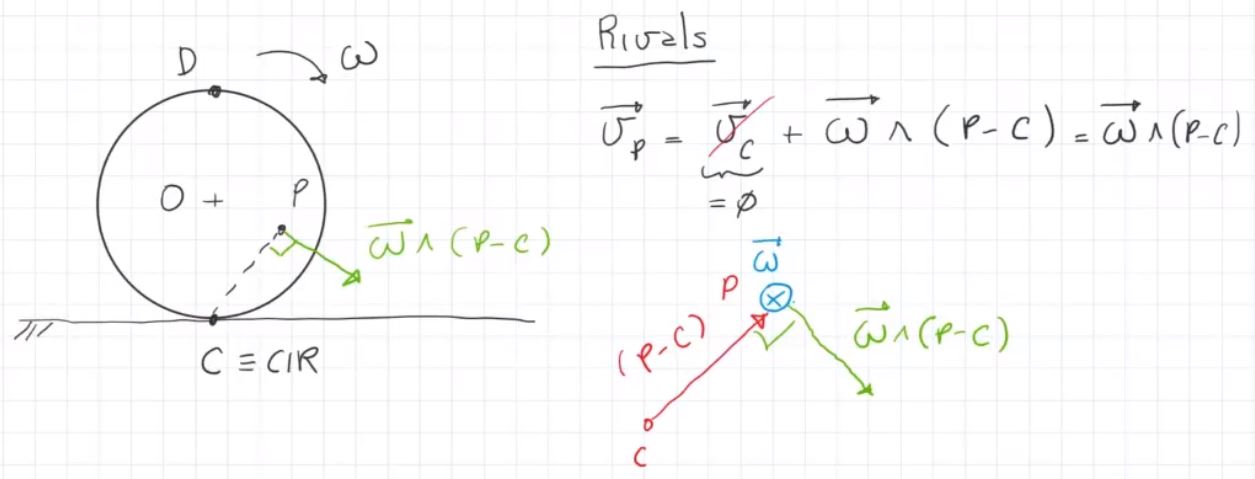 D
ω
O + P
ω⃗ ∧ (P-C)
C ≡ CIR
Rivals
v⃗_P = v⃗_C + ω⃗ ∧ (P-C) = ω⃗ ∧ (P-C)
= ∅
ω⃗
P
(P-C)
ω⃗ ∧ (P-C)
C